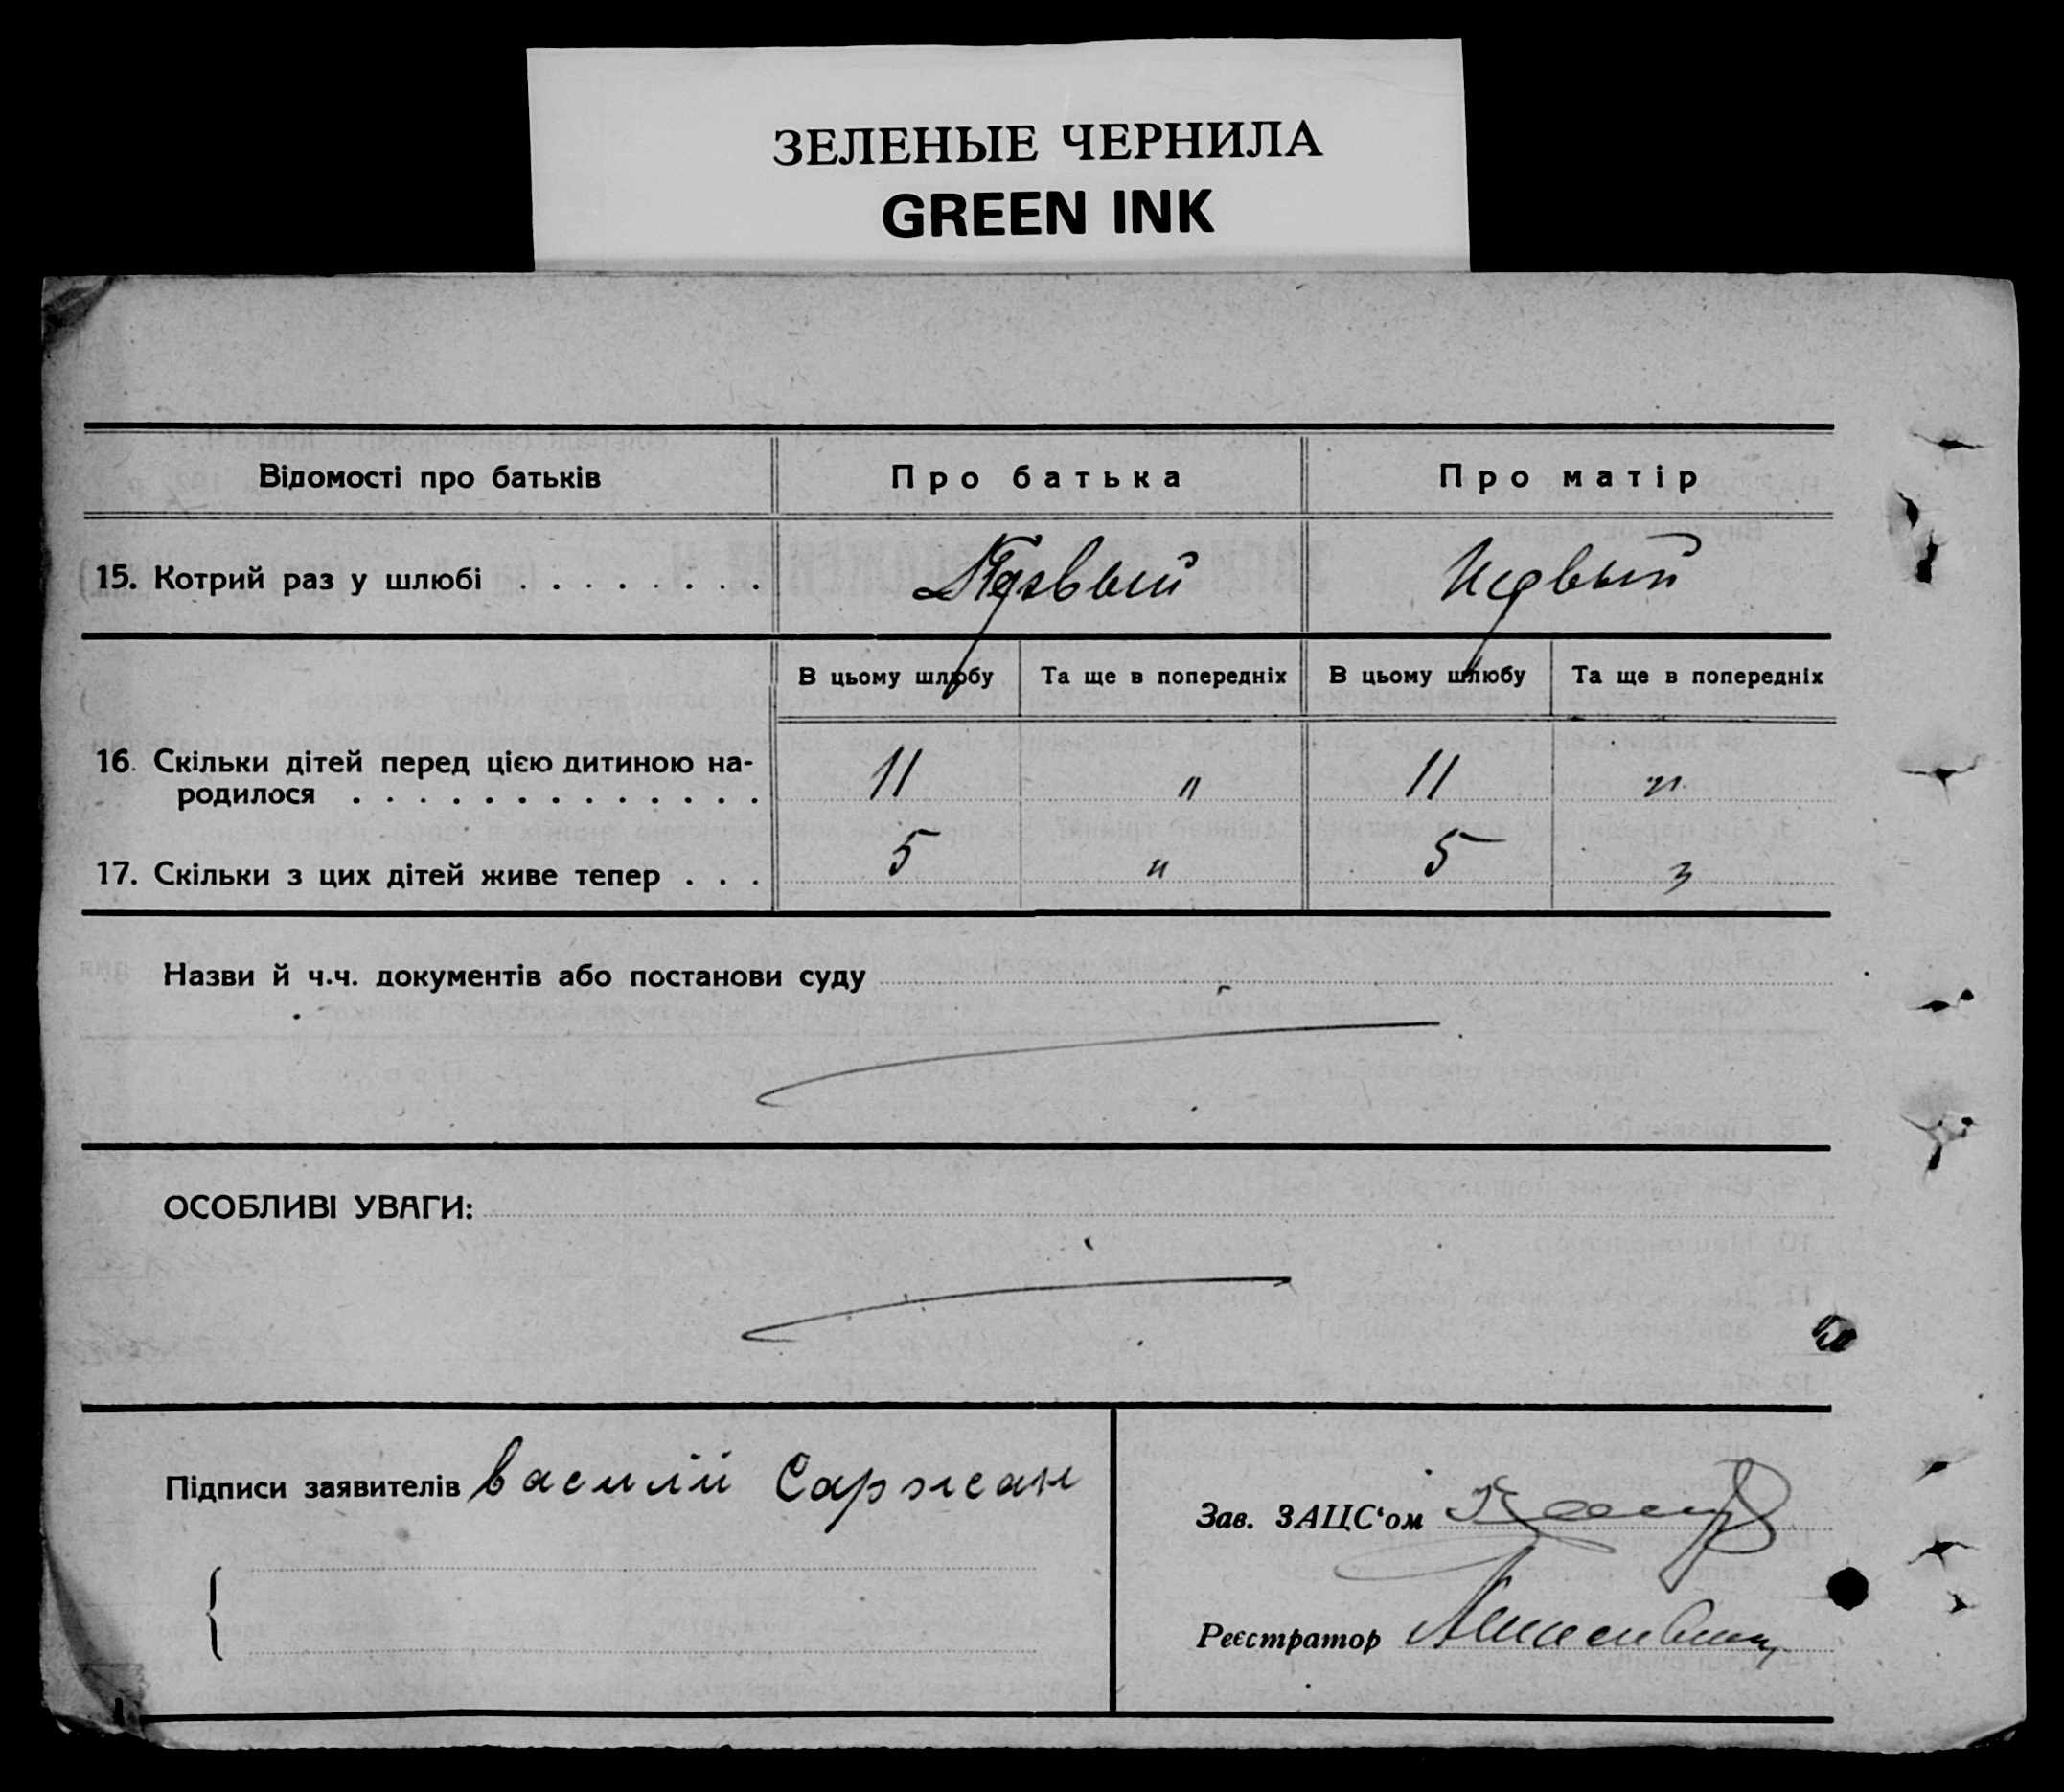 ЗЕЛЕНЫЕ ЧЕРНИЛА
GREEN INK
Відомості про батьків Про батька Про матір
15. Котрий раз у шлюбі . . . . . . . . Первый Первый
В цьому шлюбу Та ще в попередніх В цьому шлюбу Та ще в попередніх
16. Скільки дітей перед цією дитиною на- 11 " 11 "
родилося . . . . . . . . . . . . . .
17. Скільки з цих дітей живе тепер . . . 5 " 5 "
Назви й ч.ч. документів або постанови суду
ОСОБЛИВІ УВАГИ:
Підписи заявителів Василій Саржан
Зав. ЗАЦС‘ом
Реєстратор